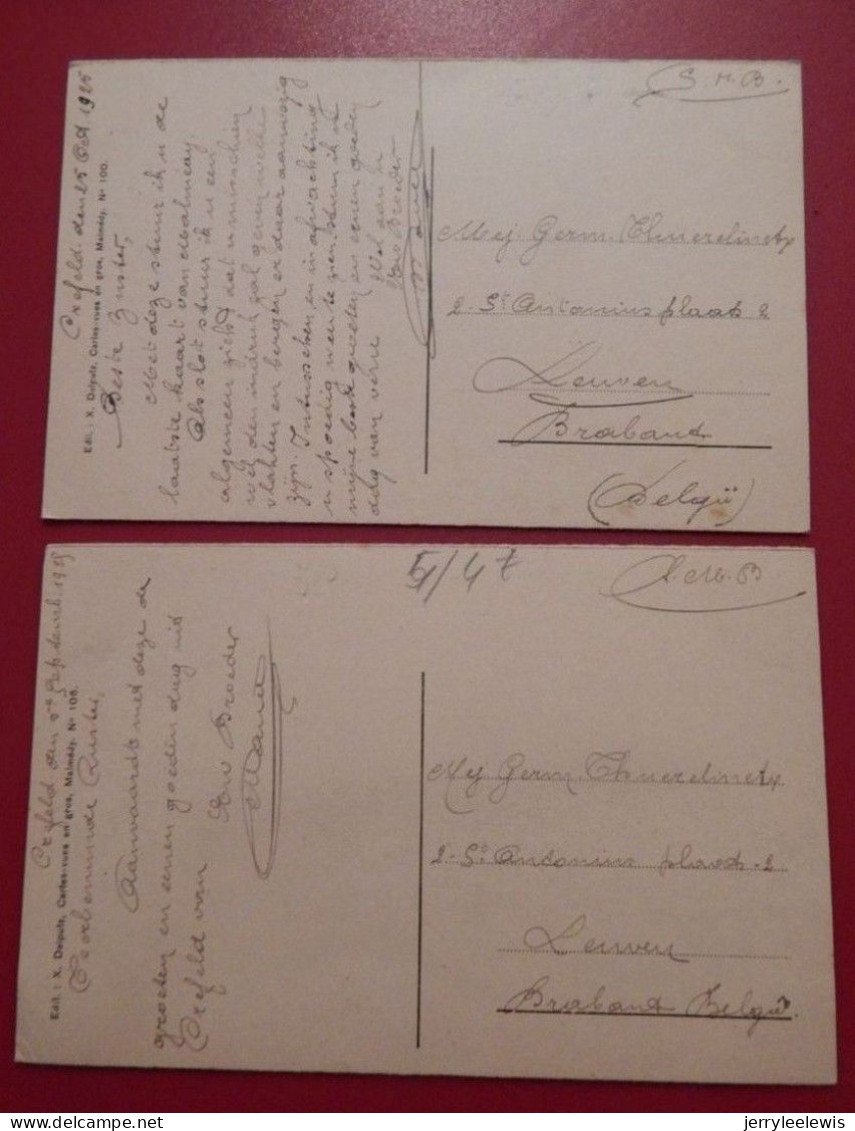 Crefeld den 25 Oct. 1925
Edit. : X. Delputz, Cartes-vues en gros, Malmédy. Nº 100.
Beste Zuster,
Met deze stuur ik u de
laatste kaart van Malmedy.
Als slot stuur ik u een
algemeen zicht dat u misschien
wel den indruk zal geven welke
vlakten en bergen er daar aanwezig
zijn. Intusschen en in afwachting
u spoedig weer te zien stuur ik u
mijne beste groeten en eenen goeden
dag van verre
Uw Broeder
S.M.B.
Mej Germ. Thuerelinckx
2 - St Antonius plaats 2
Leuven
Braband
(België)
Crefeld den Septemb. 1925
Edit. : X. Delputz, Cartes-vues en gros, Malmédy. Nº 106.
Zuster,
Aanvaardt met deze de
groeten en eenen goeden dag uit
Crefeld van
Uw Broeder
5/47
S.M.B
Mej Germ. Thuerelinckx
2 - St Antonius plaats - 2
Leuven
Braband België.
delcampe.net
jerryleelewis